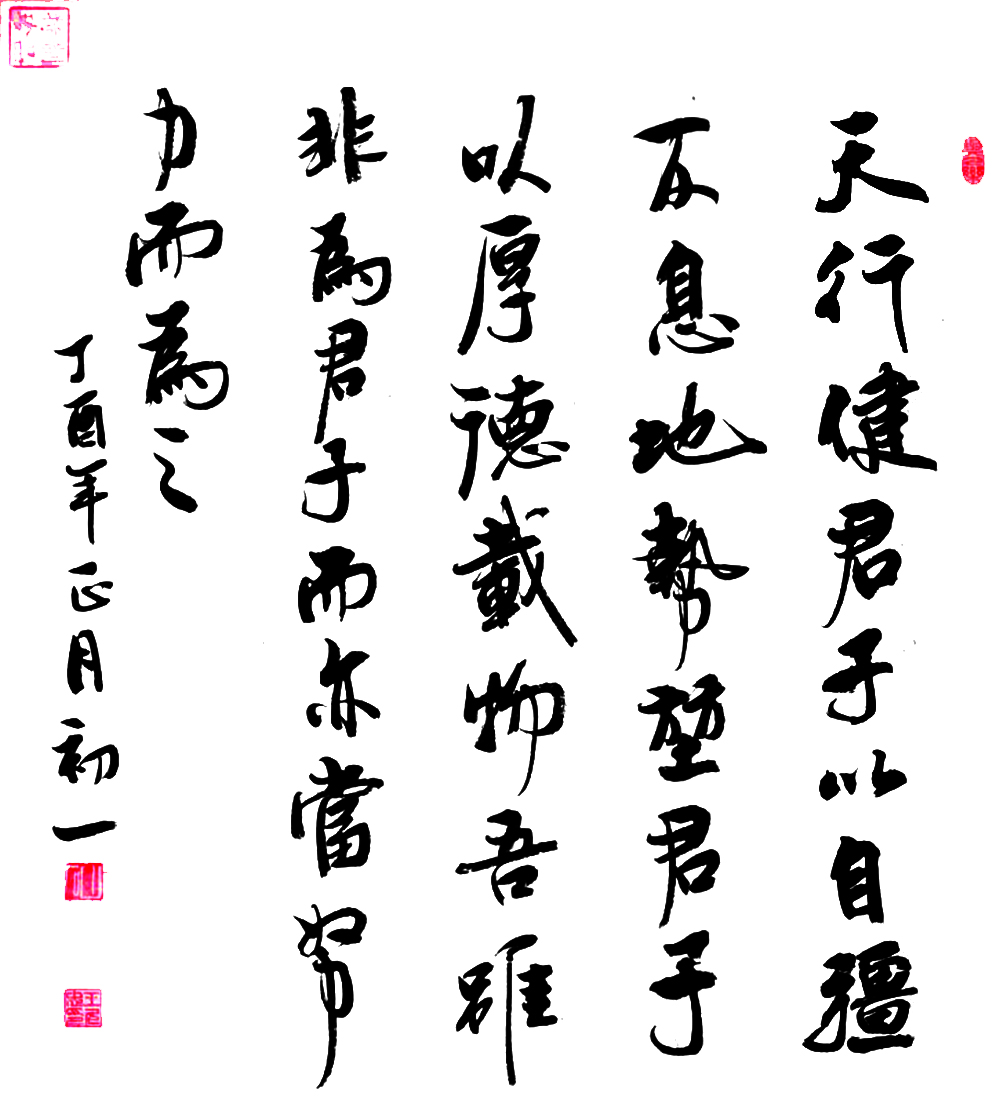 天行健君子以自彊
不息地勢堃君子
以厚德載物吾雖
非為君子而亦當努
力而為之
丁酉年正月初一